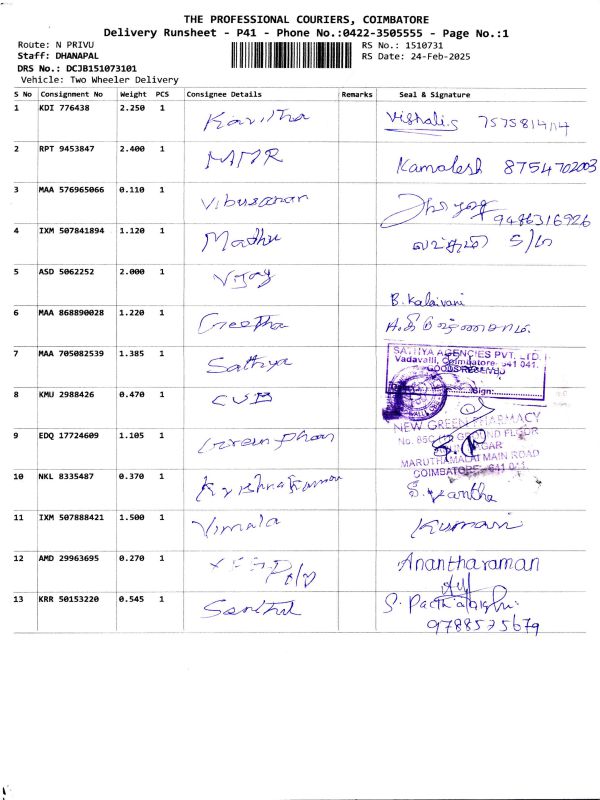 THE PROFESSIONAL COURIERS, COIMBATORE
Delivery Runsheet - P41 - Phone No.:0422-3505555 - Page No.:1
Route: N PRIVU
RS No.: 1510731
Staff: DHANAPAL
RS Date: 24-Feb-2025
DRS No.: DCJB151073101
Vehicle: Two Wheeler Delivery
S No Consignment No Weight PCS Consignee Details Remarks Seal & Signature
1 KDI 776438 2.250 1 Kavitha Vishali.S
2 RPT 9453847 2.400 1 MMR Kamalesh 8754702003
3 MAA 576965066 0.110 1 Vibusanan 9486316926
4 IXM 507841894 1.120 1 Madhu S/O
5 ASD 5062252 2.000 1 Vijay B. Kalaivani
6 MAA 868890028 1.220 1 Geetha
7 MAA 705082539 1.385 1 Sathiya
SATHYA AGENCIES PVT. LTD.
Vadavalli, Coimbatore- 641 041.
GOODS RECEIVED
Sign:
8 KMU 2988426 0.470 1 CUB
NEW GREEN PHARMACY
9 EDQ 17724609 1.105 1 Green phar
GROUND FLOOR
NAGAR
MARUTHAMALAI MAIN ROAD
COIMBATORE - 641 041.
10 NKL 8335487 0.370 1 Krishnakumar
11 IXM 507888421 1.500 1 Vimala Kumari
12 AMD 29963695 0.270 1 Anantharaman
13 KRR 50153220 0.545 1
9788575679